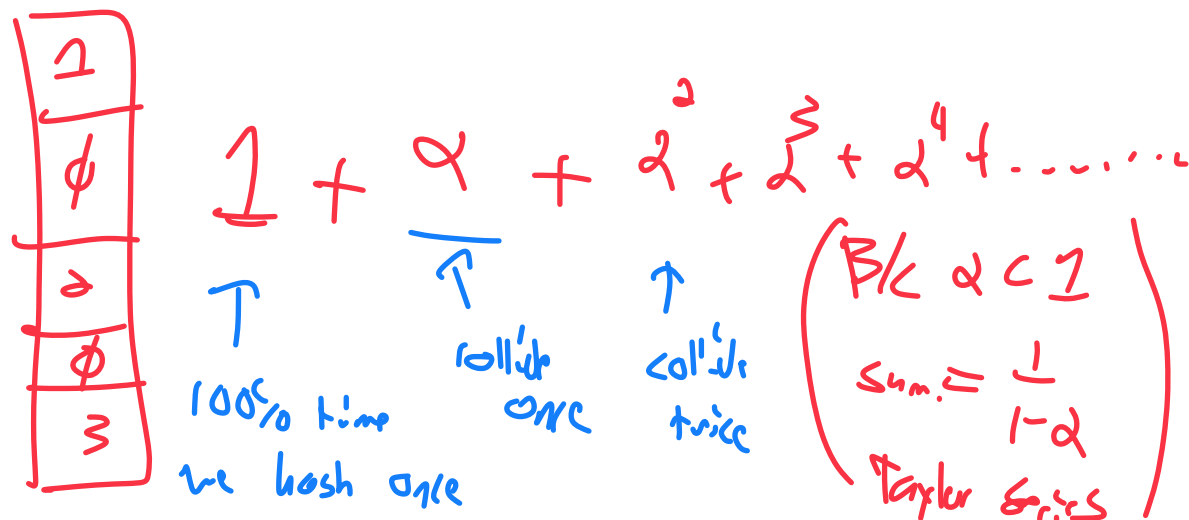 1
∅
2
∅
3
1 + α + α² + α³ + α⁴ + .........
100% time
we hash once
collide
once
collide
twice
B/c α < 1
sum = 1/(1-α)
Taylor series